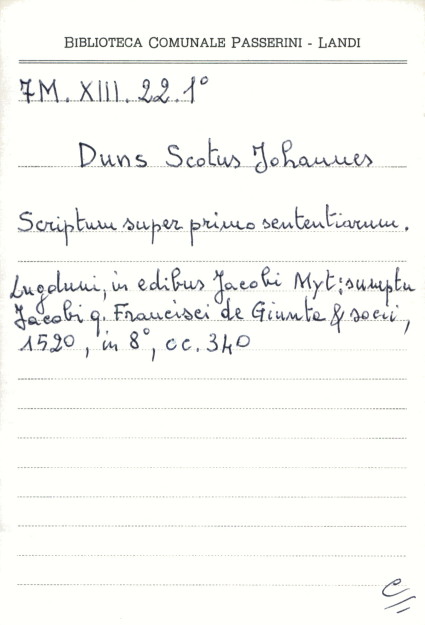 BIBLIOTECA COMUNALE PASSERINI - LANDI
7M. XIII. 22.1°
Duns Scotus Johannes
Scriptum super primo sententiarum.
Lugduni, in edibus Jacobi Myt: sumptu
Jacobi q. Francisci de Giunta & socii,
1520, in 8°, cc. 340